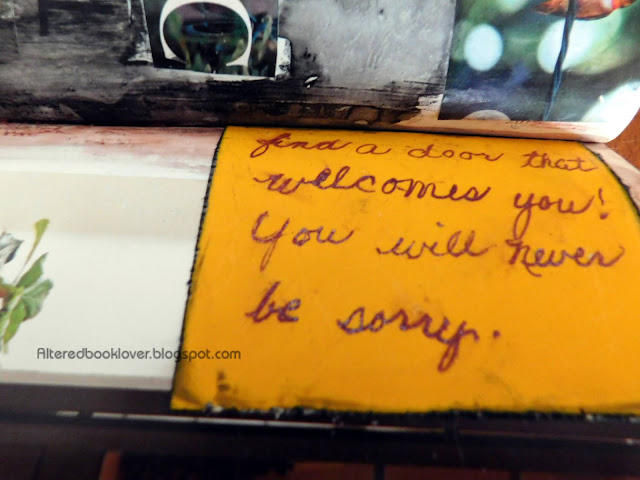 find a door that
welcomes you!
You will never
be sorry.
Alteredbooklover.blogspot.com